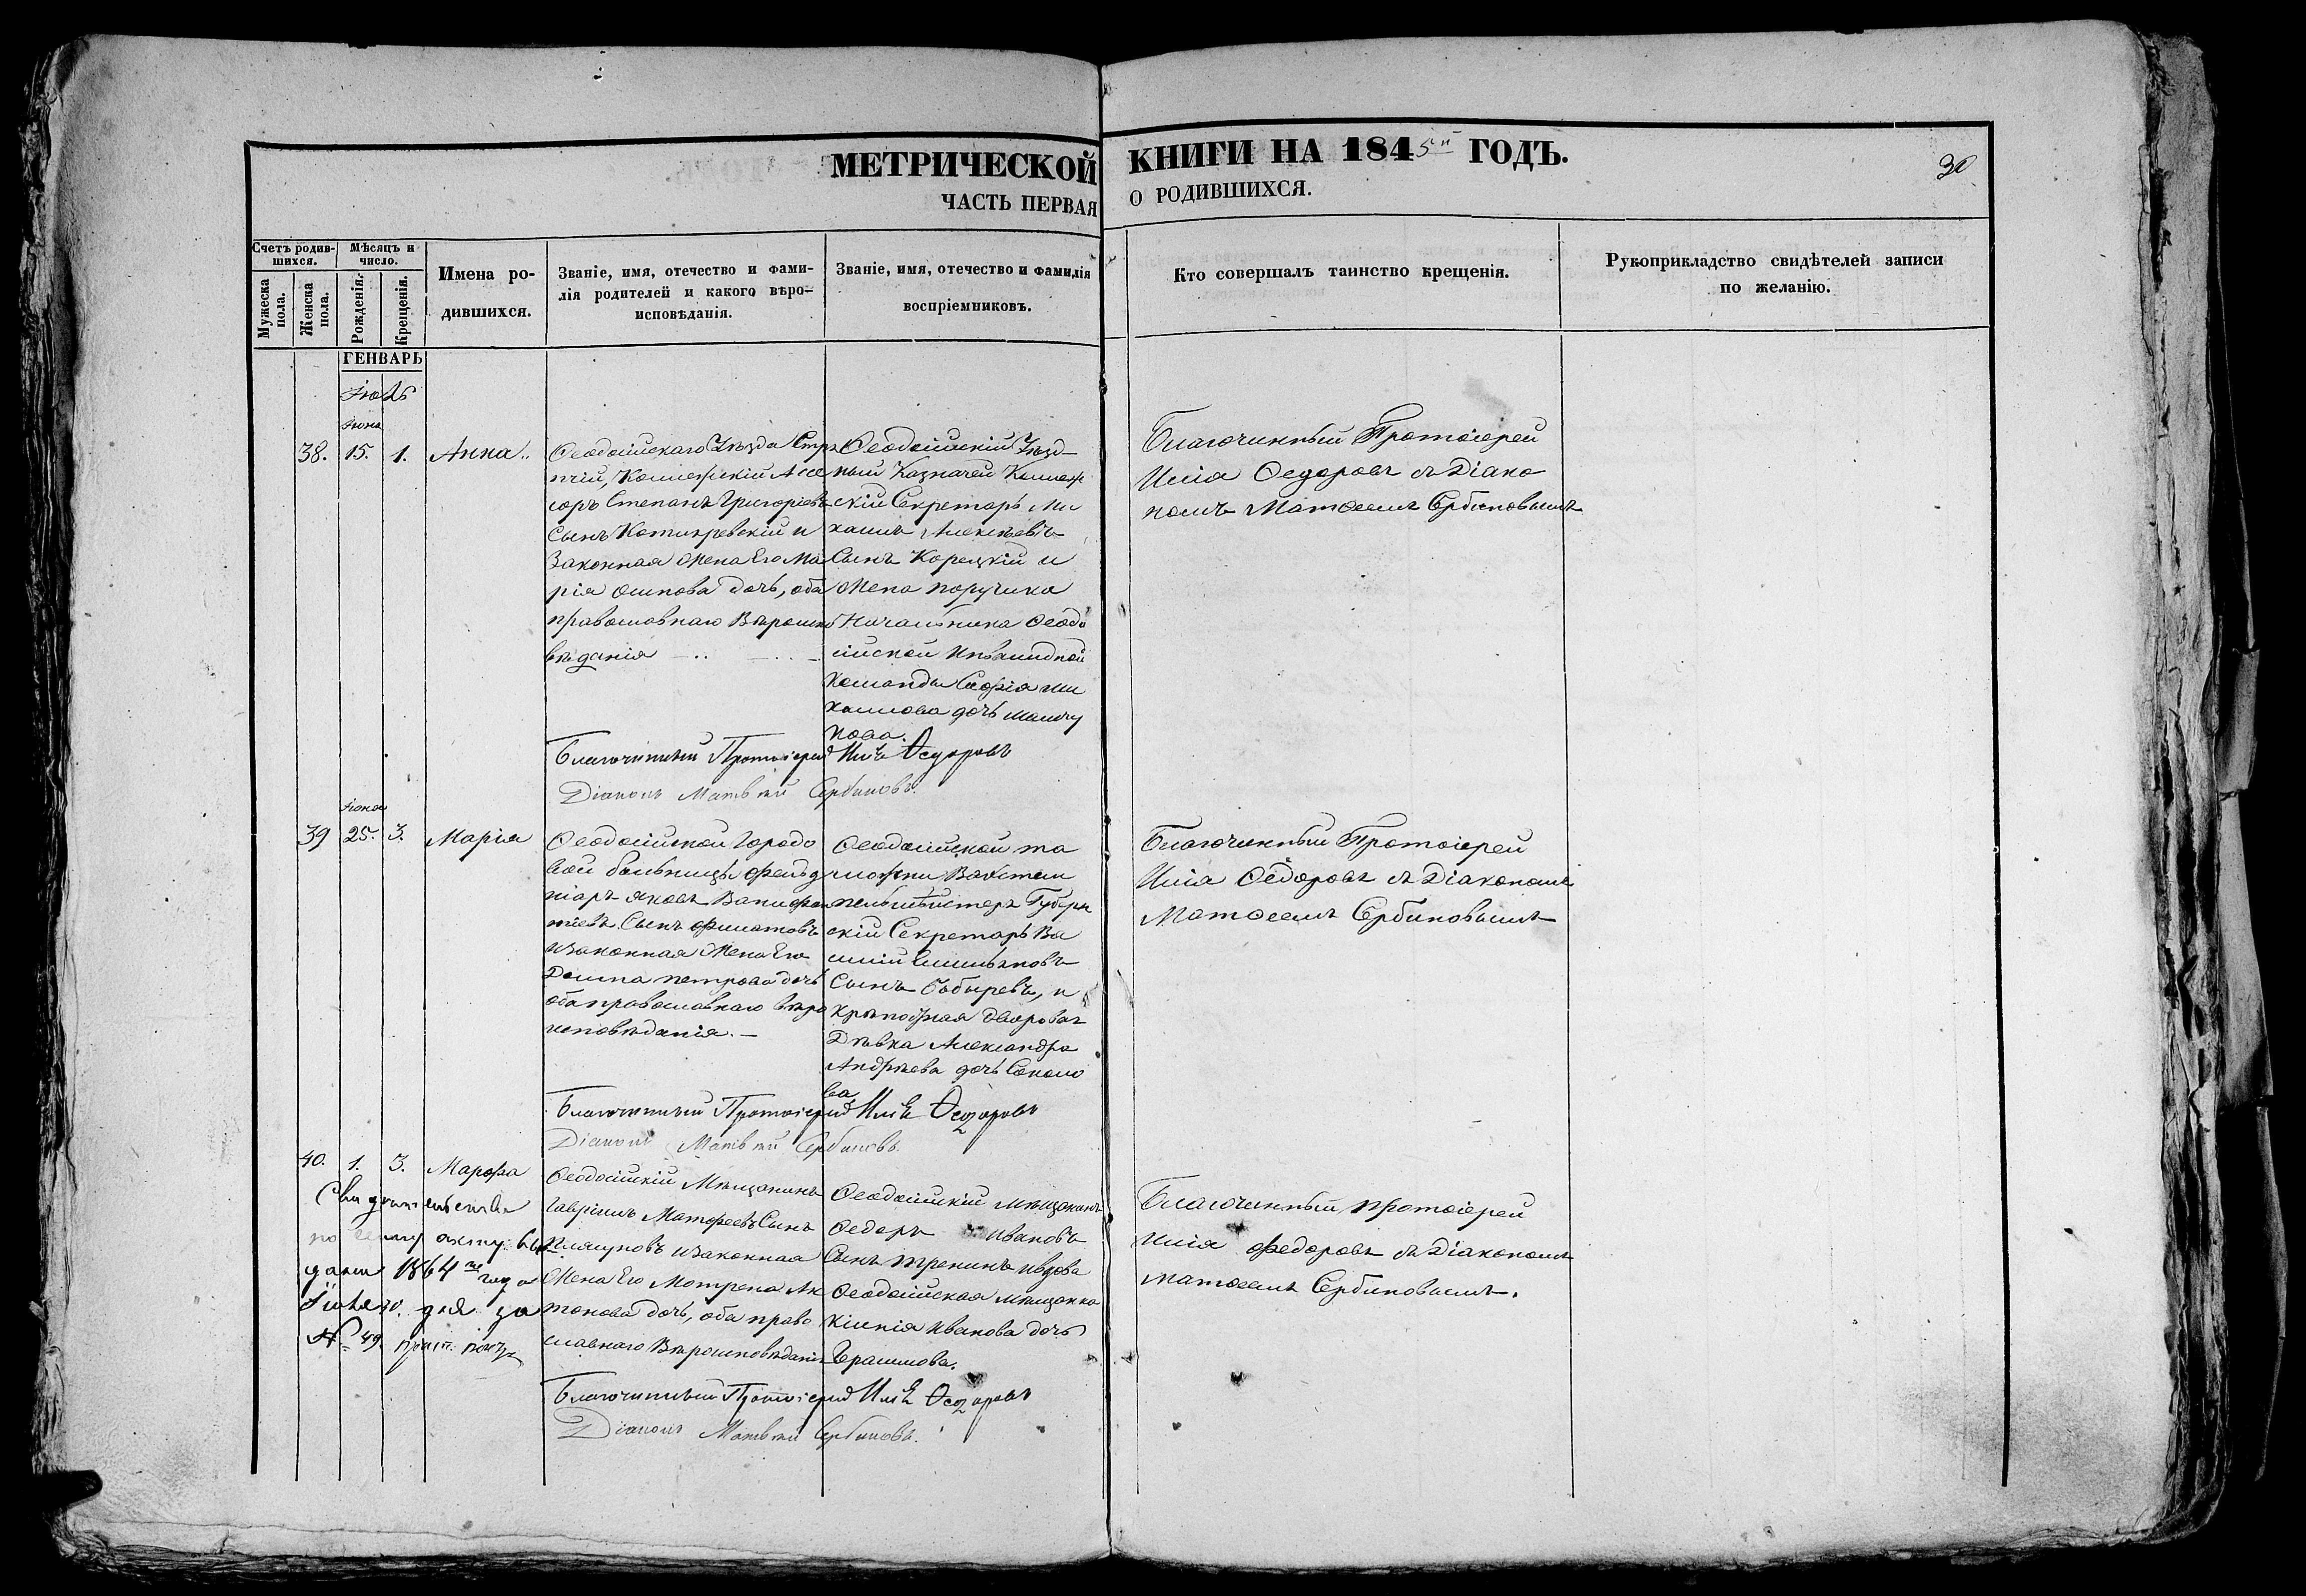 МЕТРИЧЕСКОЙ КНИГИ НА 1845й ГОДЪ.
30
ЧАСТЬ ПЕРВАЯ О РОДИВШИХСЯ.
Счетъ родив-
шихся.
Мѣсяцъ и
число.
Мужеска
пола.
Женска
пола.
Рожденія.
Крещенія.
Имена ро-
дившихся.
Званіе, имя, отечество и фами-
лія родителей и какого вѣро-
исповѣданія.
Званіе, имя, отечество и фамилія
воспріемниковъ.
Кто совершалъ таинство крещенія.
Рукоприкладство свидѣтелей записи
по желанію.
ГЕНВАРЬ
Іюль
Іюня
38. 15. 1. Анна.
Ѳеодосійскаго Уѣзда Стря
пчій, Коллежскій Ассе
соръ Степанъ Григорьевъ
Сынъ Котляревскій и
Законная Жена Его Ма
рія Осипова дочь, оба
православнаго Вѣроиспо
вѣданія
Ѳеодосійскій Уѣзд
ный Казначей Коллеж
скій Секретарь Ми
хаилъ Алексѣевъ
Сынъ Корецкій и
Жена поручика
Начальника Ѳеодо
сійской Инвалидной
Команды Софія Ми
хаилова дочь
Благочинный Протоіерей
Илія Ѳедоровъ съ Діако
номъ Матѳеемъ Сербиновымъ
Благочинный Протоіерей Илія Ѳедоровъ
Діаконъ Матвѣй Сербиновъ.
Іюня
39 25. 3. Марія
Ѳеодосійской Городо
вой больницы фельд
шеръ Яковъ
Сынъ Филатовъ
и Законная Жена Его
Домна петрова дочь
оба православнаго вѣро
исповѣданія.
Ѳеодосійской та
можни
Губерн
скій Секретарь Ва
силій Емельяновъ
Сынъ Бобыревъ, и
Крѣпостная дворовая
Дѣвка Александра
Андрѣева дочь Соколо
ва
Благочинный Протоіерей
Илія Ѳедоровъ съ Діакономъ
Матѳеемъ Сербиновымъ
Благочинный Протоіерей Илія Ѳедоровъ
Діаконъ Матвѣй Сербиновъ.
40. 1. 3. Марфа
Свидѣтельство
по сему акту вы
дано 1864го года
Іюля 30. дня за
№ 49.
Ѳеодосійскій Мѣщанинъ
Гавріилъ Матфеевъ Сынъ
Плясуновъ и Законная
Жена Его Мотрена Ан
тонова дочь, оба право
славнаго Вѣроисповѣданія
Ѳеодосійскій Мѣщанинъ
Ѳедоръ Ивановъ
Сынъ Тренинъ и вдова
Ѳеодосійская Мѣщанка
Ксенія Иванова дочь
Герасимова.
Благочинный протоіерей
Илія Федоровъ съ Діакономъ
Матѳеемъ Сербиновымъ.
Благочинный Протоіерей Илія Ѳедоровъ
Діаконъ Матвѣй Сербиновъ.